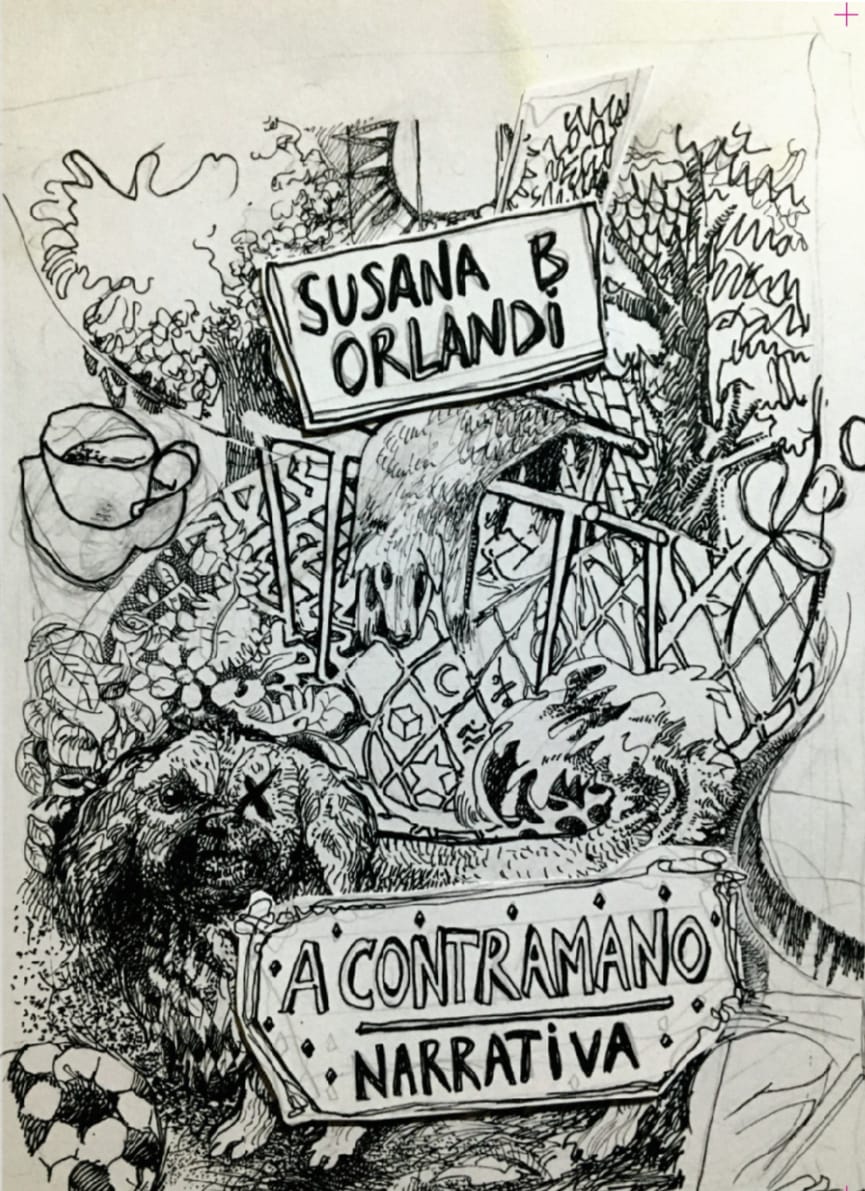 SUSANA B
ORLANDi
A CONTRAMANO
NARRATiVA